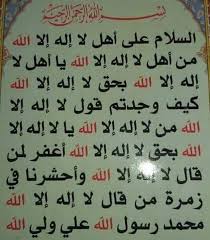 بسم الله الرحمن الرحيم
السلام على أهل لا إله إلا الله
من أهل لا إله إلا الله يا أهل لا
إله إلا الله بحق لا إله إلا الله
كيف وجدتم قول لا إله إلا
الله من لا إله إلا الله يا لا إله
إلا الله بحق لا إله إلا الله أغفر لمن
قال لا إله إلا الله وأحشرنا في
زمرة من قال لا إله إلا الله
محمد رسول الله علي ولي الله